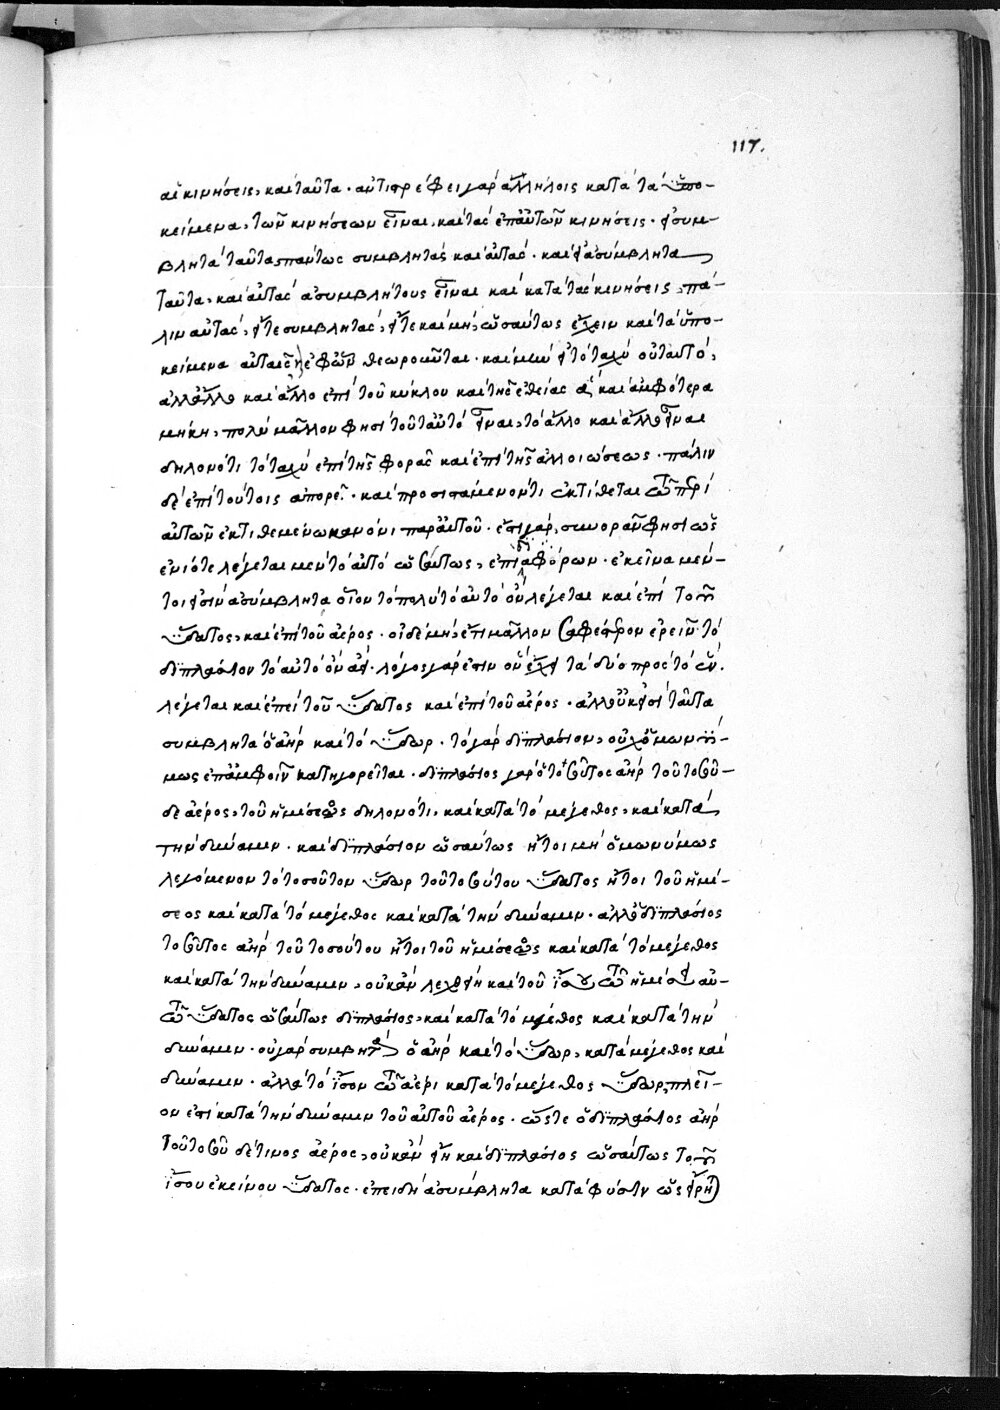 117.
αἱ κινήσεις, καὶ ταῦτα · ἀντιστρέφει γὰρ ἀλλήλοις κατὰ τὰ ὑπο-
κείμενα, τῶν κινήσεων εἶναι, καὶ τὰς ἐπ' αὐτῶν κινήσεις · συμ-
βλητὰ ταῦτα πάντως συμβλητὰς καὶ αὐτάς · καὶ ἀσύμβλητα
ταῦτα, καὶ αὐτὰς ἀσυμβλήτους εἶναι καὶ κατὰ τὰς κινήσεις, πά-
λιν αὐτὰς, τε συμβλητὰς, τε καὶ μὴ, ὡσαύτως ἔχειν καὶ τὰ ὑπο-
κείμενα αὗται ἐφ' ὧν θεωροῦνται · καὶ μὴν τὸ ταχὺ οὐ ταυτό,
ἀλλ' ἄλλο καὶ ἄλλο ἐπὶ τοῦ κύκλου καὶ τῆς εὐθείας καὶ ἀμφότερα
μήκη, πολὺ μᾶλλον φησὶ τοῦ ταὐτὸ εἶναι, τὸ ἄλλο καὶ ἄλλο εἶναι
δηλονότι τὸ ταχὺ ἐπὶ τῆς φορᾶς καὶ ἐπὶ τῆς ἀλλοιώσεως · πάλιν
δὲ ἐπὶ τούτοις ἀπορεῖ · καὶ προσιστάμενον τι ἐκτίθεται τῷ περὶ
αὐτῶν ἐκτιθεμένῳ κανόνι παρ' αὐτοῦ · ἔστι γὰρ, συνορᾶν φησὶ ὡς
ἐνίοτε λέγεται μὲν τὸ αὐτὸ ὡσαύτως, ἐπὶ διαφόρων · ἐκεῖνα μέν-
τοι εἰσὶν ἀσύμβλητα οἷον τὸ πολὺ τὸ αὐτὸ ὂν λέγεται καὶ ἐπὶ τοῦ
ὕδατος, καὶ ἐπὶ τοῦ ἀέρος · εἰ δὲ μὴ, ἔτι μᾶλλον σαφέστερον ἐρεῖν τὸ
διπλάσιον τὸ αὐτὸ ὂν · λόγος γάρ ἐστιν ὃν ἔχει τὰ δύο πρὸς τὸ ἕν.
λέγεται καὶ ἐπὶ τοῦ ὕδατος καὶ ἐπὶ τοῦ ἀέρος · ἀλλ' οὐκ εἰσὶ ταῦτα
συμβλητὰ ὁ ἀὴρ καὶ τὸ ὕδωρ · τὸ γὰρ διπλάσιον, οὐχ ὁμωνύ-
μως ἐπ' ἀμφοῖν κατηγορεῖται · διπλάσιος γὰρ ὁ τοσοῦτος ἀὴρ τοῦ τοσοῦ-
δε ἀέρος, τοῦ ἡμίσεως δηλονότι, καὶ κατὰ τὸ μέγεθος, καὶ κατὰ
τὴν δύναμιν · καὶ διπλάσιον ὡσαύτως ἤτοι μὴ ὁμωνύμως
λεγόμενον τὸ τοσοῦτον ὕδωρ τοῦ τοσούτου ὕδατος ἤτοι τοῦ ἡμί-
σεος καὶ κατὰ τὸ μέγεθος καὶ κατὰ τὴν δύναμιν · ἀλλ' ὁ διπλάσιος
τοσοῦτος ἀὴρ τοῦ τοσούτου ἤτοι τοῦ ἡμίσεως καὶ κατὰ τὸ μέγεθος
καὶ κατὰ τὴν δύναμιν, οὐκ ἂν λεχθείη καὶ τοῦ ἴσου τῷ ἡμίσει αὐ-
τῷ ὕδατος ὡσαύτως διπλάσιος, καὶ κατὰ τὸ μέγεθος καὶ κατὰ τὴν
δύναμιν · οὐ γὰρ συμβλητὰ ὁ ἀὴρ καὶ τὸ ὕδωρ, κατὰ μέγεθος καὶ
δύναμιν · ἀλλὰ τὸ ἴσον τῷ ἀέρι κατὰ τὸ μέγεθος ὕδωρ, πλεῖ-
ον ἐστι κατὰ τὴν δύναμιν τοῦ αὐτοῦ ἀέρος · ὥστε ὁ διπλάσιος ἀὴρ
τοῦ τοσοῦδέ τινος ἀέρος, οὐκ ἂν εἴη καὶ διπλάσιος ὡσαύτως τοῦ
ἴσου ἐκείνου ὕδατος · ἐπειδὴ ἀσύμβλητα κατὰ φύσιν ὡς εἴρηται